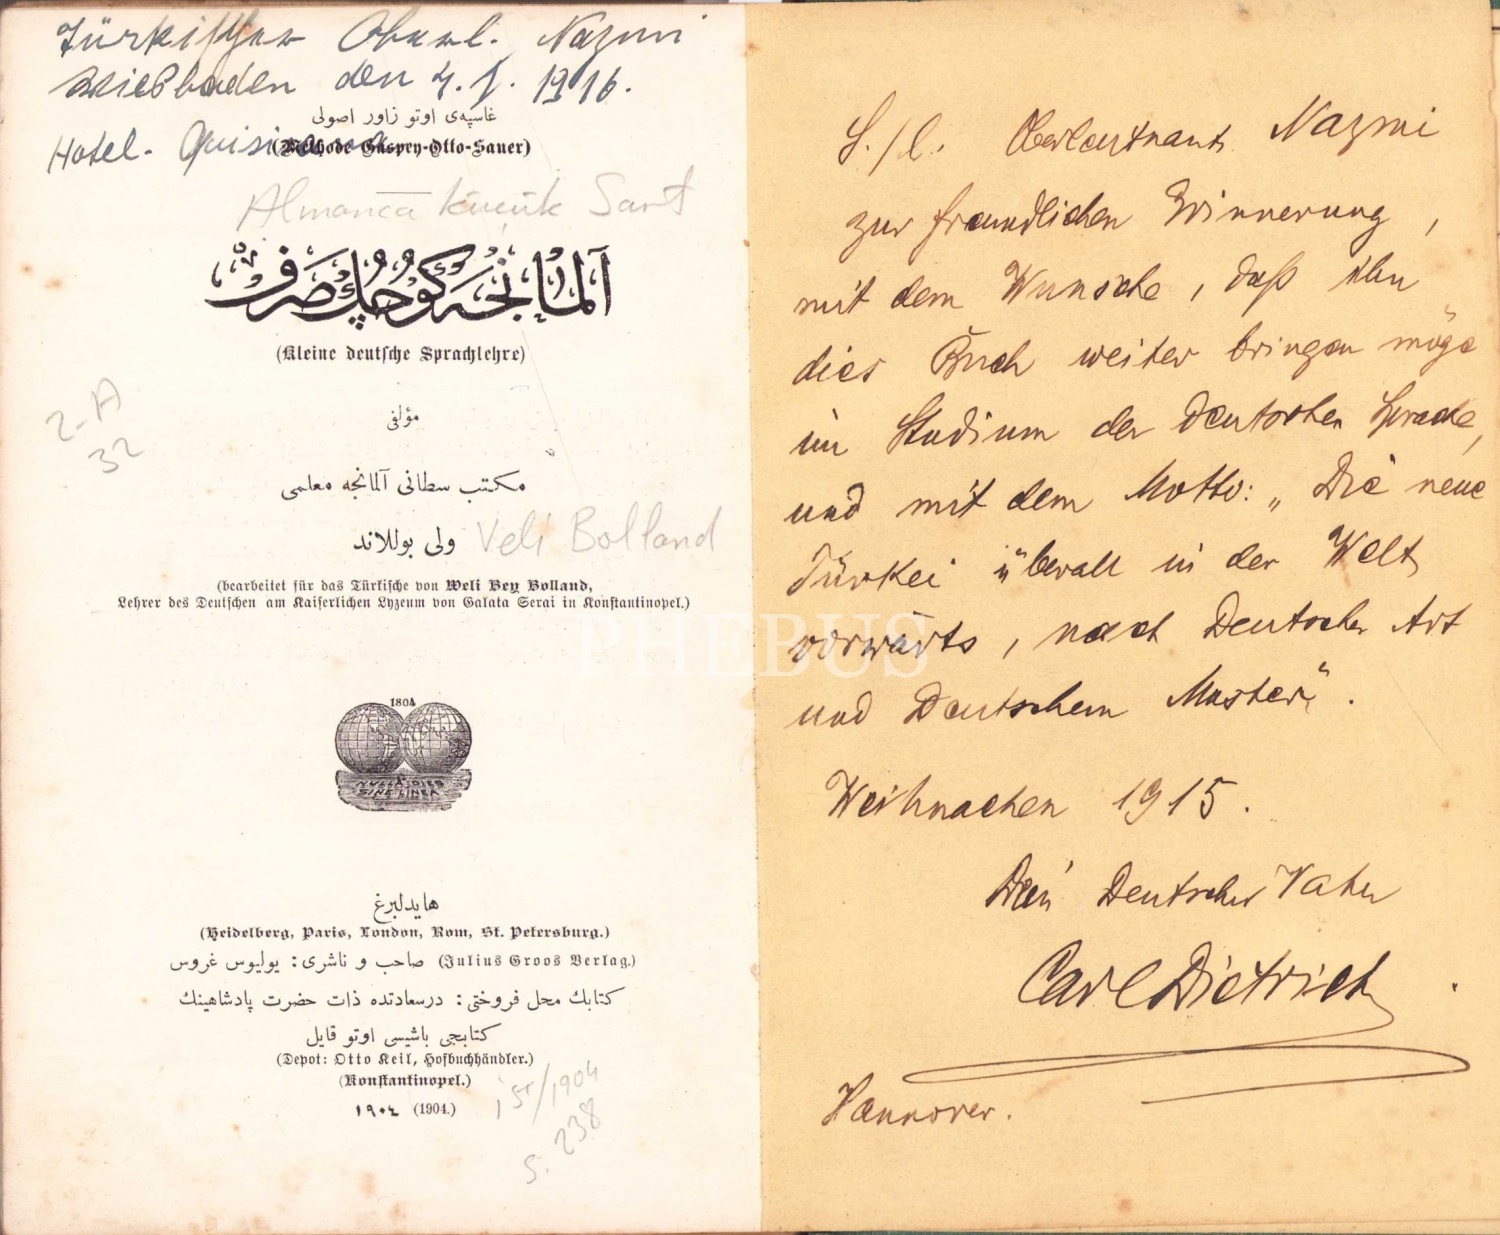 Türkischer Oberl. Nazmi
Wiesbaden den 4. 1. 1916.
Hotel. Quisisana
غاسپه‌ی اوتو زاور اصولی
(Methode Gaspey-Otto-Sauer)
Almanca küçük Sarf
آلمانجه كوچك صرف
(Kleine deutsche Sprachlehre)
2-A
32
مؤلفی
مكتب سطانی آلمانجه معلمی
ولی بوللاند Veli Bolland
(bearbeitet für das Türkische von Weli Bey Bolland,
Lehrer des Deutschen am Kaiserlichen Lyzeum von Galata Serai in Konstantinopel.)
1804
NULLA DIES
SINE LINEA
هايدلبرغ
(Heidelberg, Paris, London, Rom, St. Petersburg.)
صاحب و ناشری: يوليوس غروس (Julius Groos Verlag.)
كتابك محل فروختی: درسعادتده ذات حضرت پادشاهينك
كتابجی باشيسی اوتو قايل
(Depot: Otto Keil, Hofbuchhändler.)
(Konstantinopel.)
١٩٠٤ (1904.)
1904
S. 238
S./l. Oberleutnant Nazmi
zur freundlichen Erinnerung,
mit dem Wunsche, daß ihn
dies Buch weiter bringen möge
im Studium der Deutschen Sprache,
und mit dem Motto: „Die neue
Türkei überall in der Welt
vorwärts, nach Deutscher Art
und Deutschem Muster".
Weihnachen 1915.
Dein Deutscher Vater
Carl Dietrich
Hannover.
PHEBUS